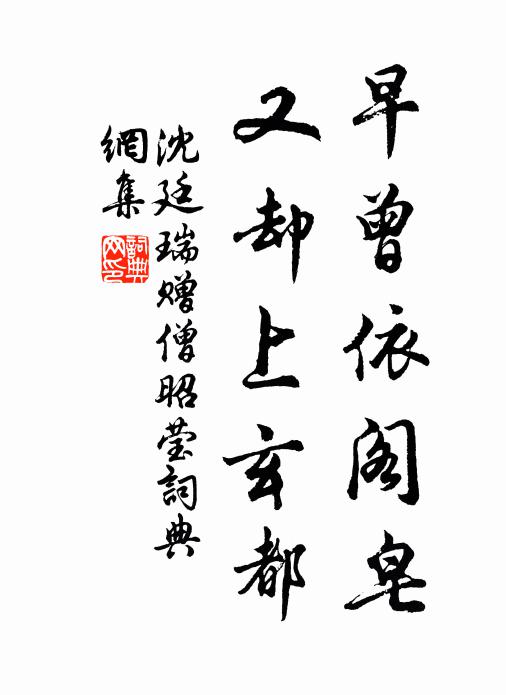 早曾依阁皂
又却上玄都
沈廷瑞赠僧昭莹詞典
網集
詞典
网印